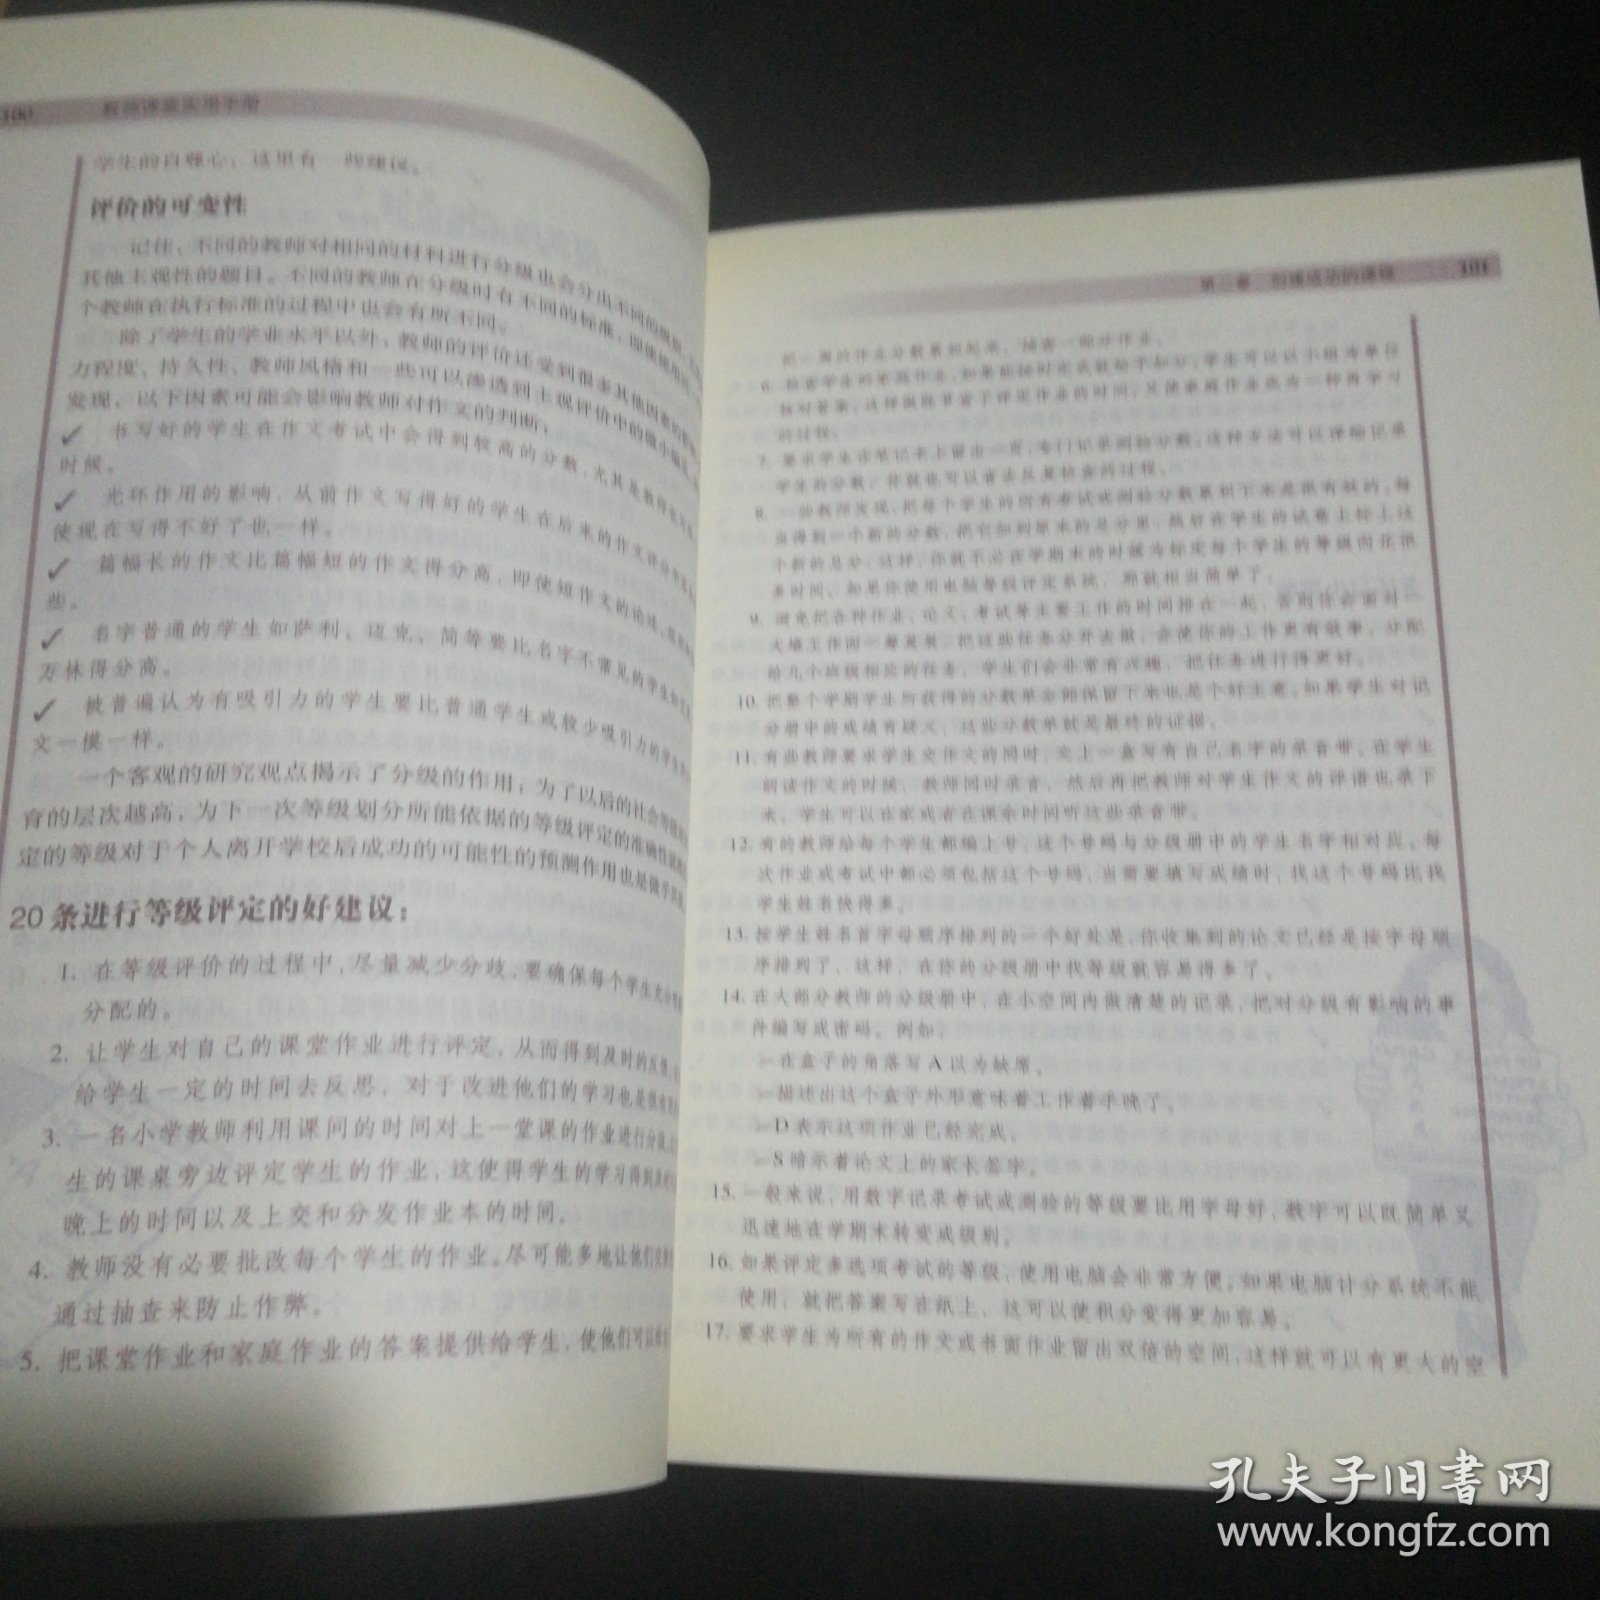 100 教师课堂实用手册
学生的自尊心，这里有一些建议。
评价的可变性
记住，不同的教师对相同的材料进行分级也会分出不同的
其他主观性的题目。不同的教师在分级时有不同的标准，即使使用同
个教师在执行标准的过程中也会有所不同。
除了学生的学业水平以外，教师的评价还受到很多其他因素的影响
力程度、持久性、教师风格和一些可以渗透到主观评价中的微小偏见
发现，以下因素可能会影响教师对作文的判断：
✓ 书写好的学生在作文考试中会得到较高的分数，尤其是教师
时候。
✓ 光环作用的影响，从前作文写得好的学生在后来的作文评分中
使现在写得不好了也一样。
✓ 篇幅长的作文比篇幅短的作文得分高，即使短作文的论述、
些。
✓ 名字普通的学生如萨利、迈克、简等要比名字不常见的学生如
万林得分高。
✓ 被普遍认为有吸引力的学生要比普通学生或较少吸引力的学生
文一模一样。
一个客观的研究观点揭示了分级的作用：为了以后的社会等级
育的层次越高，为下一次等级划分所能依据的等级评定的准确性就
定的等级对于个人离开学校后成功的可能性的预测作用也是微乎其微
20条进行等级评定的好建议：
1. 在等级评价的过程中，尽量减少分歧，要确保每个学生
分配的。
2. 让学生对自己的课堂作业进行评定，从而得到及时的反馈，
给学生一定的时间去反思，对于改进他们的学习也是很有
3. 一名小学教师利用课间的时间对上一堂课的作业进行分级，
生的课桌旁边评定学生的作业，这使得学生的学习得到及时
晚上的时间以及上交和分发作业本的时间。
4. 教师没有必要批改每个学生的作业。尽可能多地让他们
通过抽查来防止作弊。
5. 把课堂作业和家庭作业的答案提供给学生，使他们可以
第二章 创建成功的课程 101
把一周的作业分数累加起来，抽查一部分作业。
6. 检查学生的家庭作业，如果能按时完成就给予加分，学生可以以小组为单位
核对答案，这样既能节省了评定作业的时间，又使家庭作业成为一种再学习
的过程。
7. 要求学生在笔记本上留出一页，专门记录测验分数，这种方法可以详细记录
学生的分数，你就也可以省去反复检查的过程。
8. 一些教师发现，把每个学生的所有考试或测验分数累积下来是很有效的，每
当得到一个新的分数，把它加到原来的总分里，然后在学生的试卷上标上这
个新的总分，这样，你就不必在学期末的时候为标定每个学生的等级而花很
多时间。如果你使用电脑等级评定系统，那就相当简单了。
9. 避免把各种作业、论文、考试等主要工作的时间排在一起，否则你会面对一
大堆工作而一筹莫展，把这些任务分开去做，会使你的工作更有效率。分配
给几个班级相应的任务，学生们会非常有兴趣，把任务进行得更好。
10. 把整个学期学生所获得的分数单全部保留下来也是个好主意。如果学生对记
分册中的成绩有疑义，这些分数单就是最终的证据。
11. 有些教师要求学生交作文的同时，交上一盒写有自己名字的录音带。在学生
朗读作文的时候，教师同时录音，然后再把教师对学生作文的评语也录下
来。学生可以在家或者在课余时间听这些录音带。
12. 有的教师给每个学生都编上号，这个号码与分级册中的学生名字相对应。每
次作业或考试中都必须包括这个号码，当需要填写成绩时，找这个号码比找
学生姓名快得多。
13. 按学生姓名首字母顺序排列的一个好处是，你收集到的论文已经是按字母顺
序排列了，这样，在你的分级册中找等级就容易得多了。
14. 在大部分教师的分级册中，在小空间内做清楚的记录，把对分级有影响的事
件编写成密码。例如，
➢在盒子的角落写A以为缺席。
➢描述出这个盒子外形意味着工作着手晚了。
➢D表示这项作业已经完成。
➢S暗示着论文上的家长签字。
15. 一般来说，用数字记录考试或测验的等级要比用字母好，数字可以既简单又
迅速地在学期末转变成级别。
16. 如果评定多选项考试的等级，使用电脑会非常方便。如果电脑计分系统不能
使用，就把答案写在纸上，这可以使积分变得更加容易。
17. 要求学生为所有的作文或书面作业留出双倍的空间，这样就可以有更大的空
孔夫子旧书网
www.kongfz.com